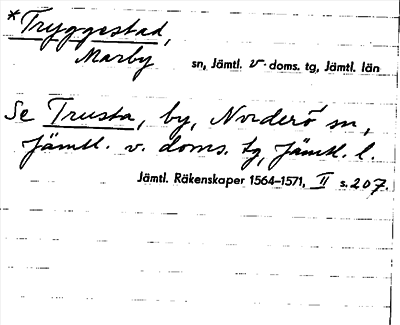 *Tryggestad,
Marby sn, Jämtl. v. doms. tg, Jämtl. län
Se Trusta, by, Norderö sn,
Jämtl. v. doms. tg, Jämtl. l.
Jämtl. Räkenskaper 1564–1571, II s. 207.